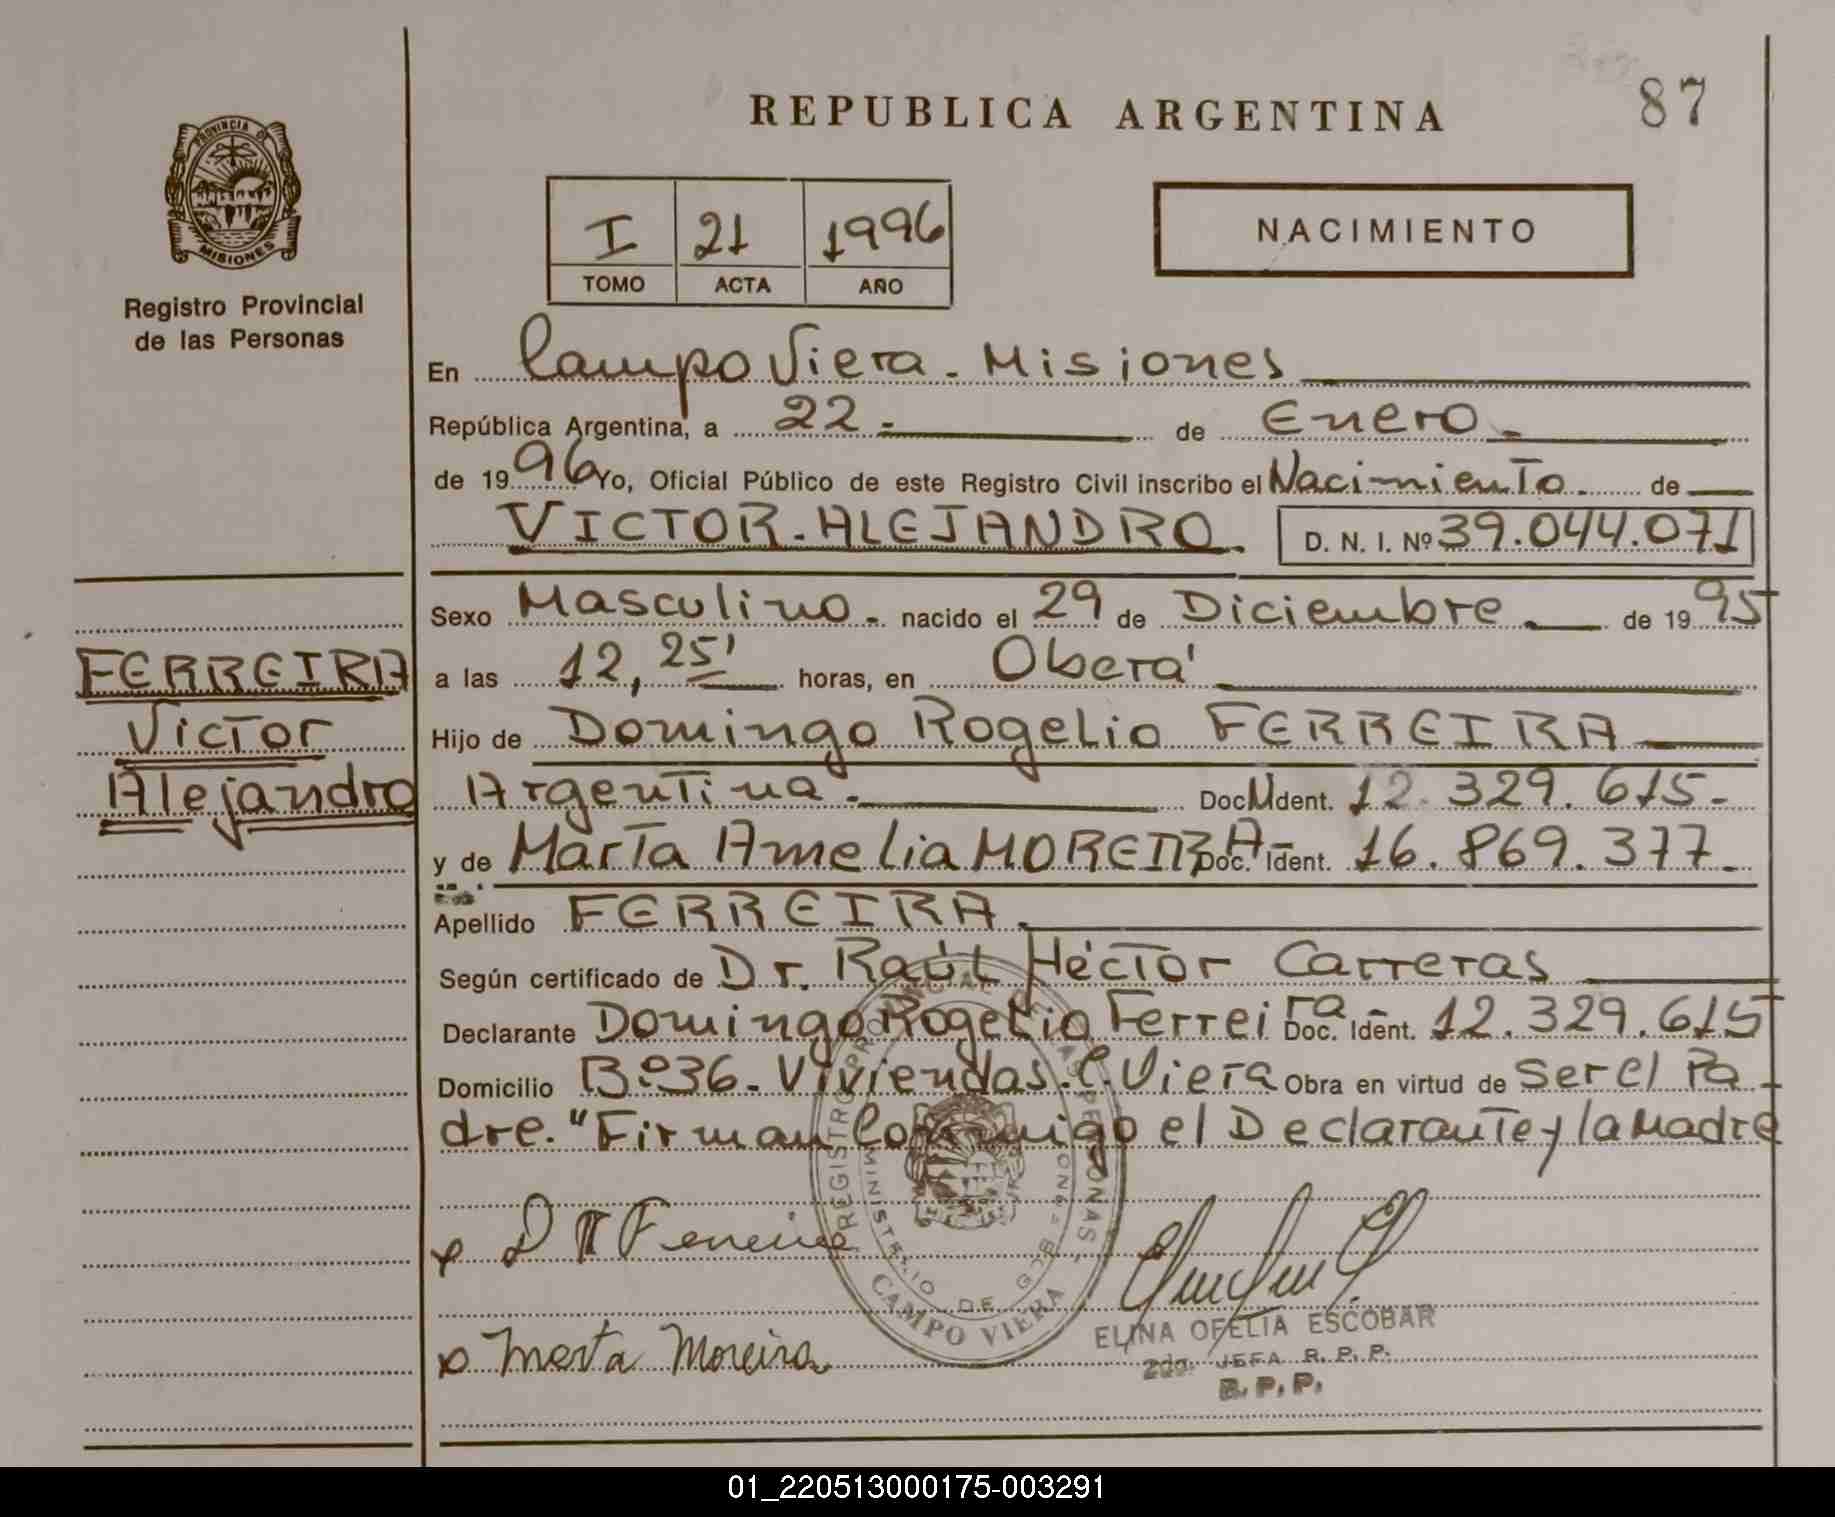 REPUBLICA ARGENTINA
87
PROVINCIA DE
MISIONES
Registro Provincial
de las Personas
I 21 1996
TOMO ACTA AÑO
NACIMIENTO
En Campo Viera - Misiones
República Argentina, a 22 - de Enero -
de 1996 Yo, Oficial Público de este Registro Civil inscribo el Nacimiento. de
VICTOR - ALEJANDRO. D. N. I. Nº 39.044.071
Sexo Masculino. nacido el 29 de Diciembre de 1995
a las 12,25' horas, en Oberá
FERREIRA
Victor
Alejandro
Hijo de Domingo Rogelio FERREIRA
Argentina. Doc. Ident. 12.329.615-
y de Marta Amelia MOREIRA - Doc. Ident. 16.869.377-
Apellido FERREIRA.
Según certificado de Dr. Raúl Héctor Carreras
Declarante Domingo Rogelio Ferreira - Doc. Ident. 12.329.615
Domicilio Bº 36 - Viviendas. C. Viera Obra en virtud de ser el Pa-
dre. "Firman Conmigo el Declarante y la Madre
REGISTRO PROVINCIAL DE LAS PERSONAS
MINISTERIO DE GOB
CAMPO VIERA
D R Ferreira
Marta Moreira
ELINA OFELIA ESCOBAR
2da. JEFA R. P. P.
R. P. P.
01_220513000175-003291